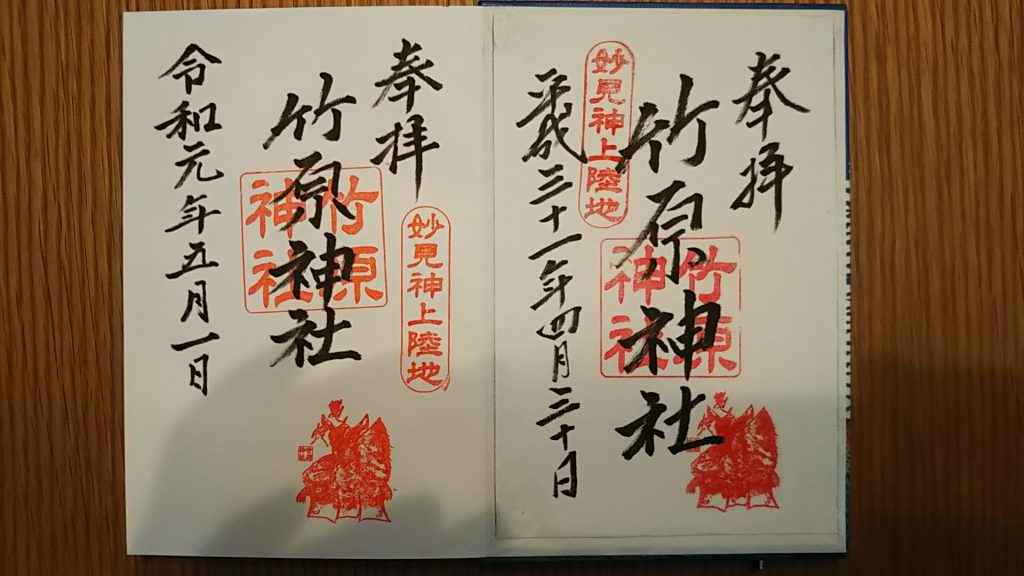 奉拝
妙見神上陸地
竹原神社
竹原神社
平成三十一年四月三十日
奉拝
妙見神上陸地
竹原神社
竹原神社
令和元年五月一日